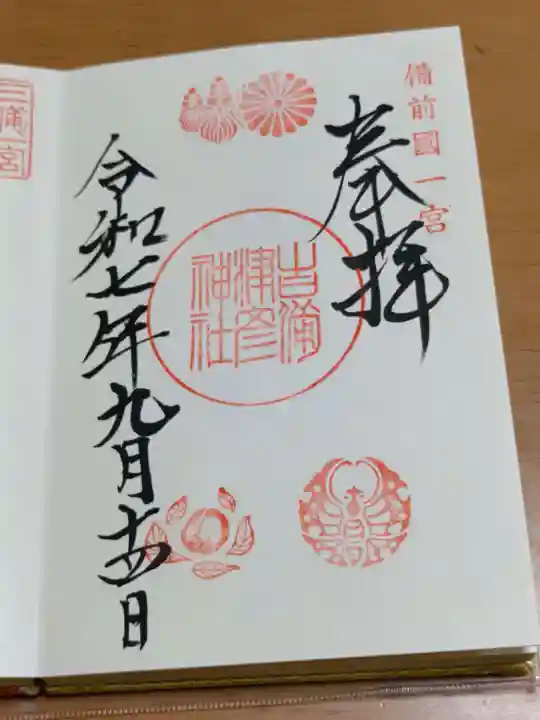 備前國一宮
奉拝
吉備
津彦
神社
令和七年九月十四日
三備一宮